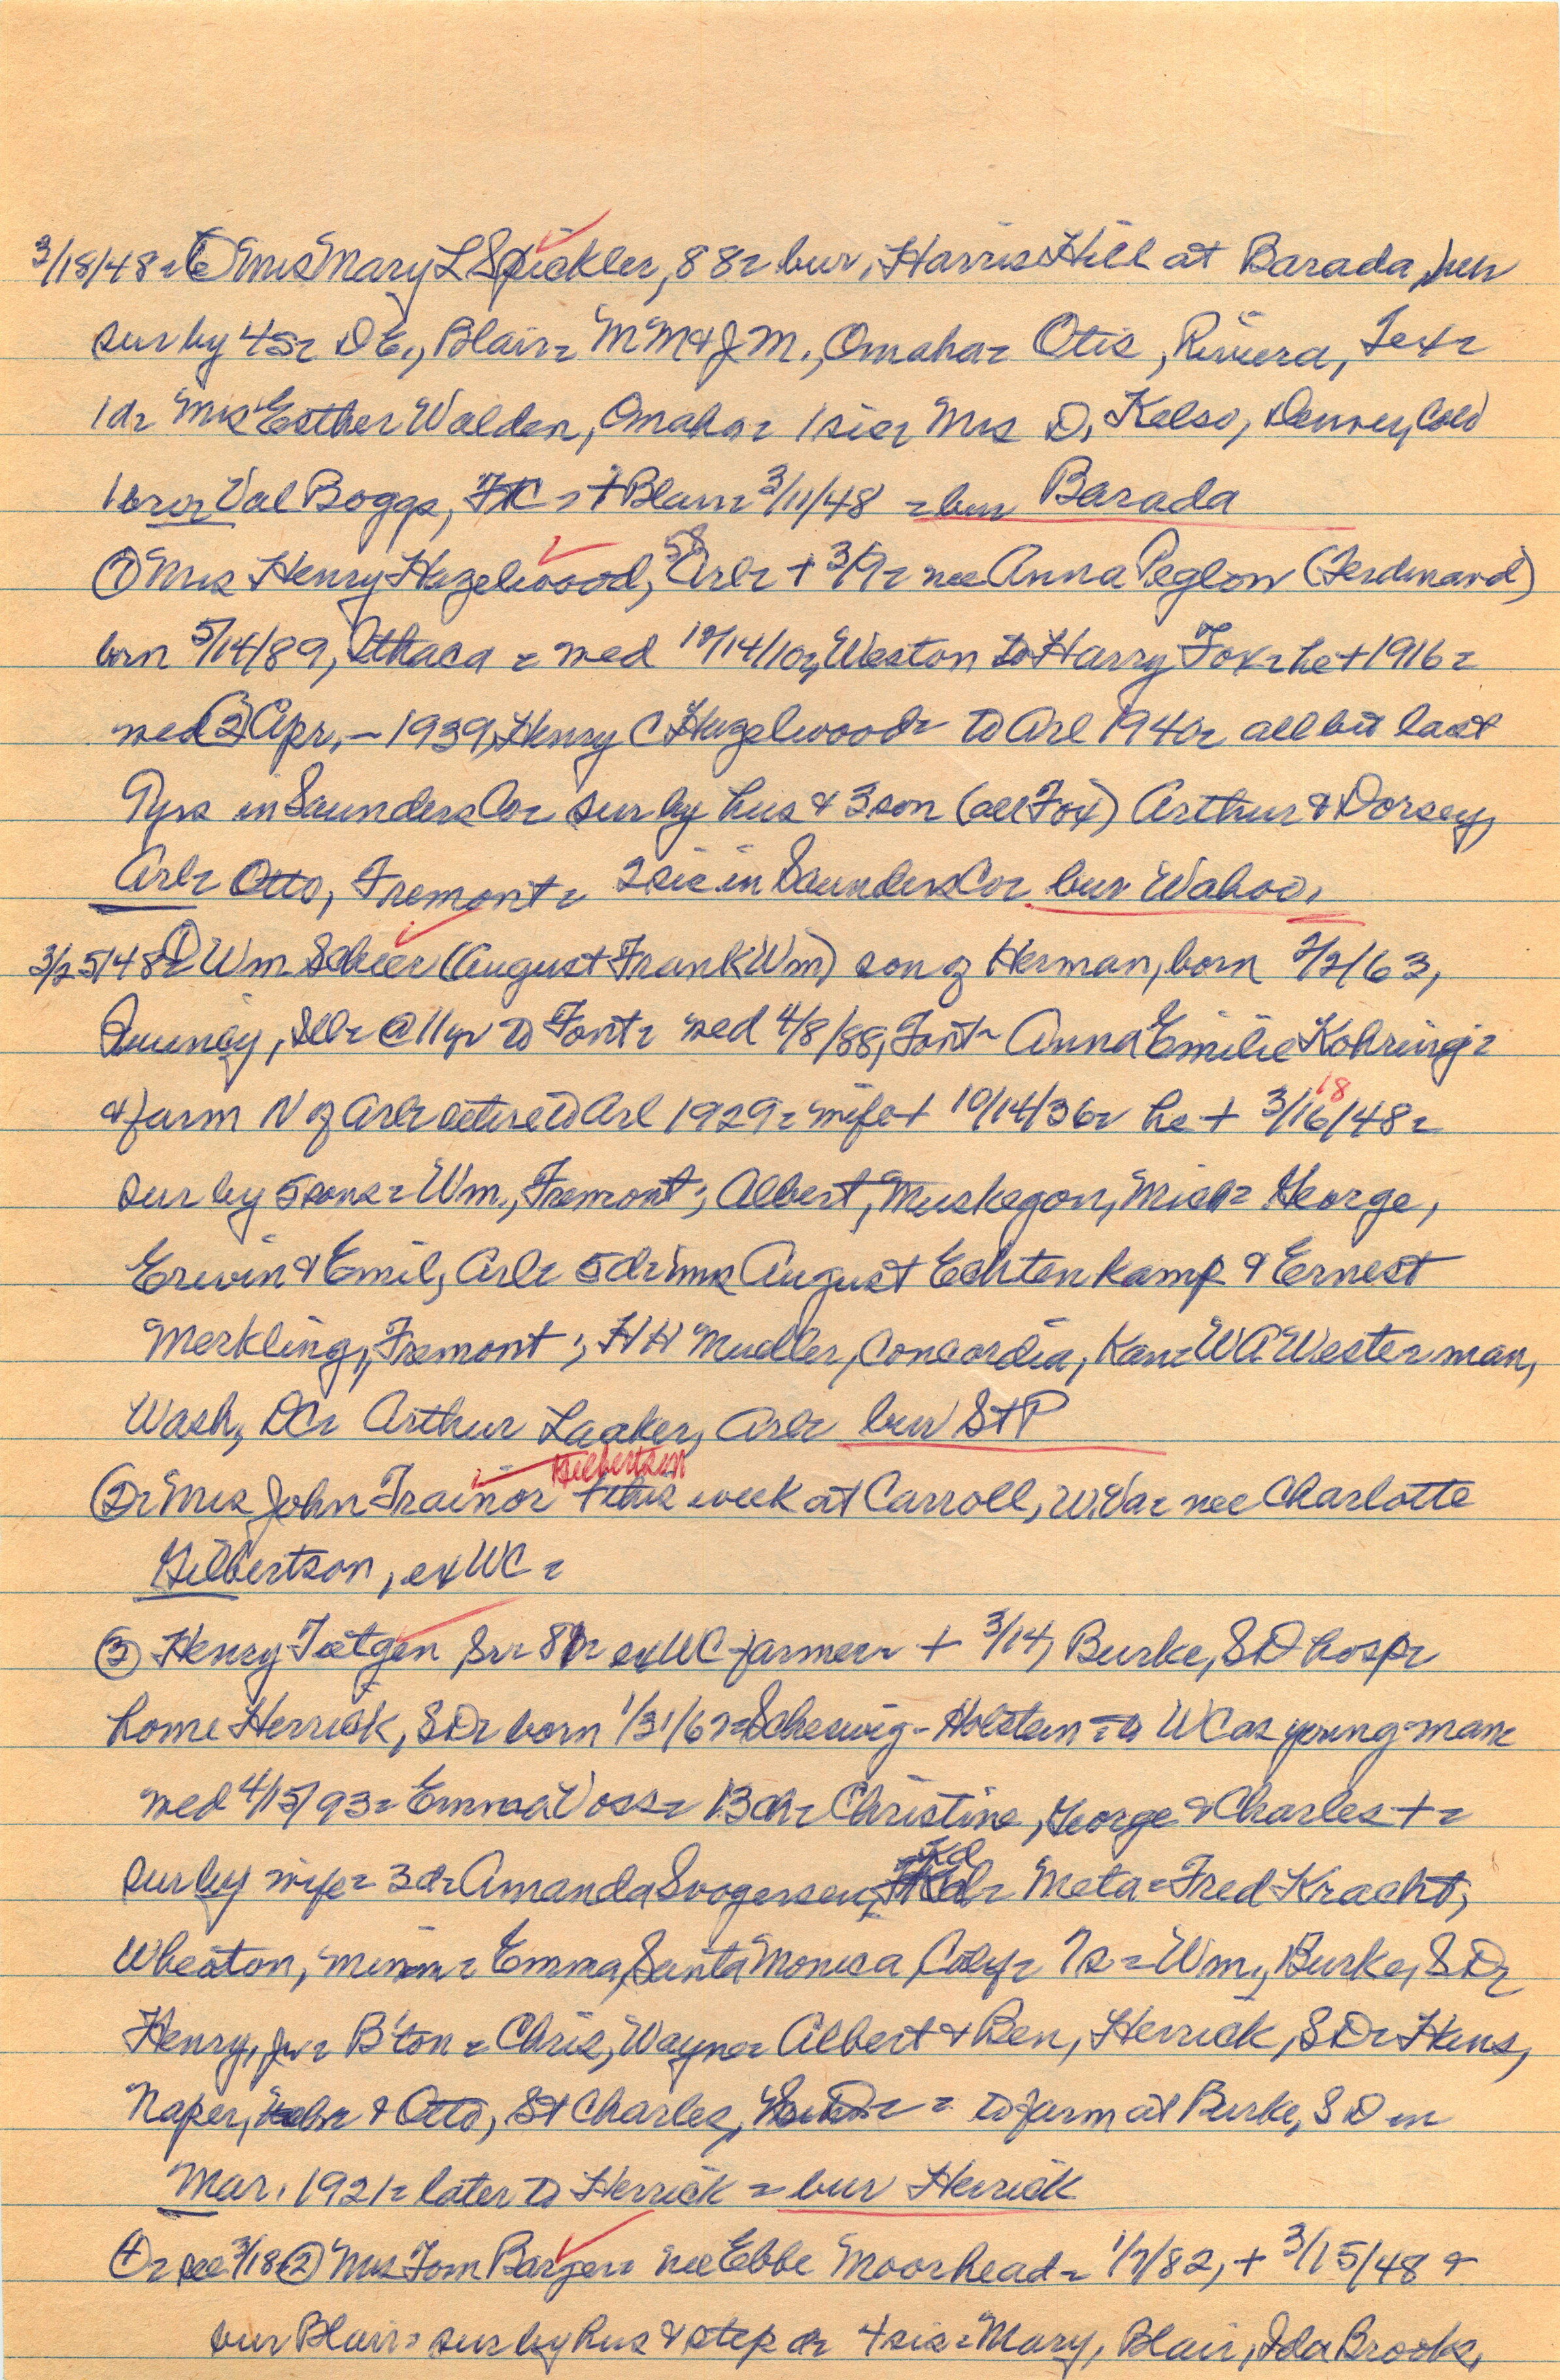 3/18/48 = 6 Mrs Mary L Spickler, 88 = bur, Harris Hill at Barada,
sur by 4 s = D E., Blair = M M & J M., Omaha = Otis, Riviera, Tex =
1 d = Mrs Esther Walden, Omaha = 1 sis = Mrs D. Kelso, Denver, Colo
1 bro = Val Boggs, = + Blair = 3/11/48 = bur Barada
7 Mrs Henry Hazelwood, 58 Arl = + 3/9 = nee Anna Peglow (Ferdinand)
born 5/14/89, Ithaca = med 10/14/10, Weston to Harry Fox = he + 1916 =
med 2 Apr. – 1939, Henry C Hazelwood = to Arl 1940 = all but last
7 yrs in Saunders Co = sur by hus & 3 son (all Fox) Arthur & Dorsey,
Arl = Otto, Fremont = 2 sis in Saunders Co = bur Wahoo.
3/25/48 = 1 Wm Scheer (August Frank Wm) son of Herman, born 2/2/63,
Quincy, Ill = @ 11 yr to Font = med 4/8/88, Font ~ Anna Emilie Kohring =
& farm N of Arl = retire to Arl 1929 = wife + 10/14/36 = he + 3/16/48 = 18
sur by 5 sons = Wm., Fremont; Albert, Muskegon, Mich = George,
Erwin & Emil, Arl = 5 d = mrs August Echtenkamp & Ernest
Merkling, Fremont; H H Mueller, Concordia, Kan = W A Westerman,
Wash, DC = Arthur Laaker, Arl = bur St P
Gilbertson
2 = Mrs John Trainor + this week at Carroll, W. Va = nee Charlotte
Gilbertson, ex WC =
3 Henry Tietgen Sr = 81 = ex WC farmer = + 3/14, Burke, SD hosp =
home Herrick, SD = born 1/31/67 = Scheswig-Holstein = to WC as young man =
med 4/15/93 = Emma Voss = 13 ch = Christine, George & Charles + =
sur by wife = 3 d = Amanda Svogersen, Kd = Meta = Fred Kracht,
Wheaton, Minn = Emma, Santa Monica, Calif = 7 s = Wm., Burke, SD =
Henry, Jr = B'ton = Chris, Wayne = Albert & Ben, Herrick, SD = Hans,
Naper, Nebr & Otto, St Charles, = to farm at Burke, SD in
Mar. 1921 = later to Herrick = bur Herrick
4 = see 3/18-2 Mrs Tom Barger = nee Ebbe Moorhead = 1/7/82, + 3/15/48 &
bur Blair = sur by hus & step dr 4 sis = Mary, Blair, Ida Brooks,